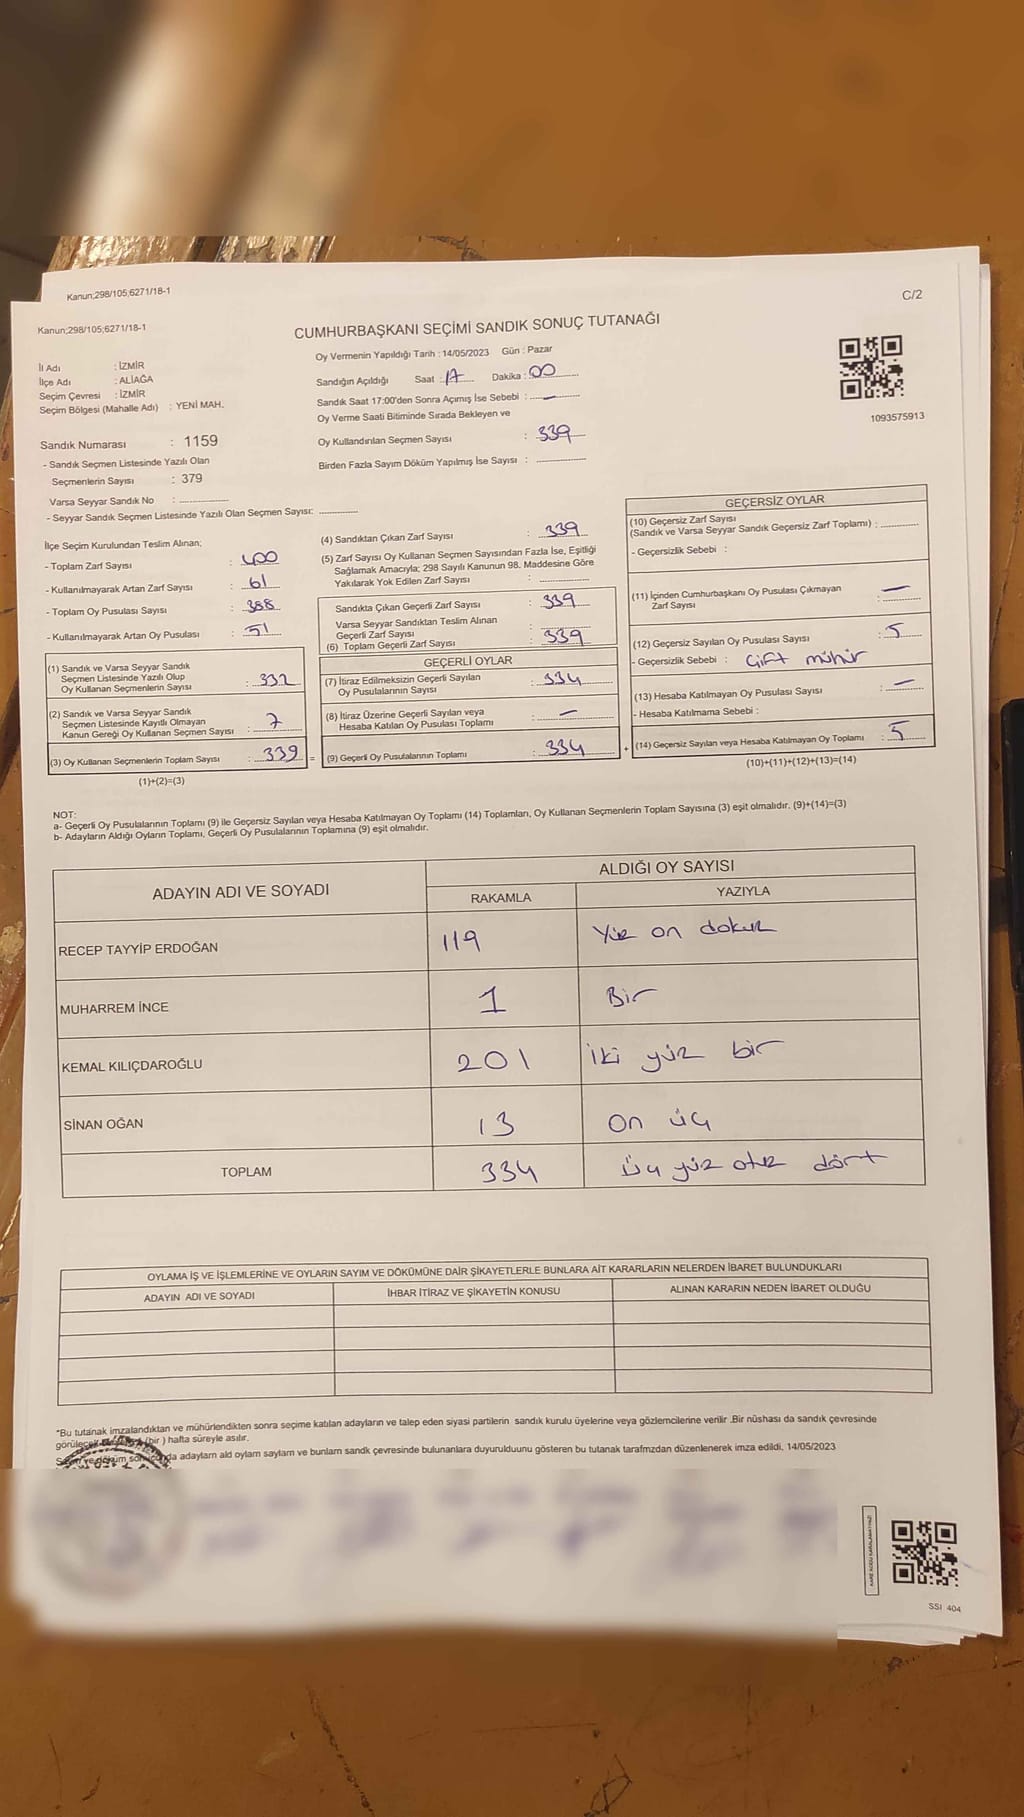 Kanun;298/105;6271/18-1
C/2
Kanun;298/105;6271/18-1
CUMHURBAŞKANI SEÇİMİ SANDIK SONUÇ TUTANAĞI
İl Adı : İZMİR
İlçe Adı : ALİAĞA
Seçim Çevresi : İZMİR
Seçim Bölgesi (Mahalle Adı) : YENİ MAH.
Sandık Numarası : 1159
- Sandık Seçmen Listesinde Yazılı Olan
Seçmenlerin Sayısı : 379
Varsa Seyyar Sandık No :
- Seyyar Sandık Seçmen Listesinde Yazılı Olan Seçmen Sayısı:
Oy Vermenin Yapıldığı Tarih : 14/05/2023 Gün : Pazar
Sandığın Açıldığı Saat : 17 Dakika : 00
Sandık Saat 17:00'den Sonra Açımış İse Sebebi : —
Oy Verme Saati Bitiminde Sırada Bekleyen ve
Oy Kullandırılan Seçmen Sayısı : 339
Birden Fazla Sayım Döküm Yapılmış İse Sayısı :
1093575913
İlçe Seçim Kurulundan Teslim Alınan;
- Toplam Zarf Sayısı : 400
- Kullanılmayarak Artan Zarf Sayısı : 61
- Toplam Oy Pusulası Sayısı : 388
- Kullanılmayarak Artan Oy Pusulası : 51
(1) Sandık ve Varsa Seyyar Sandık
Seçmen Listesinde Yazılı Olup
Oy Kullanan Seçmenlerin Sayısı : 332
(2) Sandık ve Varsa Seyyar Sandık
Seçmen Listesinde Kayıtlı Olmayan
Kanun Gereği Oy Kullanan Seçmen Sayısı : 7
(3) Oy Kullanan Seçmenlerin Toplam Sayısı : 339 =
(1)+(2)=(3)
(4) Sandıktan Çıkan Zarf Sayısı : 339
(5) Zarf Sayısı Oy Kullanan Seçmen Sayısından Fazla İse, Eşitliği
Sağlamak Amacıyla; 298 Sayılı Kanunun 98. Maddesine Göre
Yakılarak Yok Edilen Zarf Sayısı :
Sandıkta Çıkan Geçerli Zarf Sayısı : 339
Varsa Seyyar Sandıktan Teslim Alınan
Geçerli Zarf Sayısı :
(6) Toplam Geçerli Zarf Sayısı : 339
GEÇERLİ OYLAR
(7) İtiraz Edilmeksizin Geçerli Sayılan
Oy Pusulalarının Sayısı : 334
(8) İtiraz Üzerine Geçerli Sayılan veya
Hesaba Katılan Oy Pusulası Toplamı : —
(9) Geçerli Oy Pusulalarının Toplamı : 334 +
GEÇERSİZ OYLAR
(10) Geçersiz Zarf Sayısı
(Sandık ve Varsa Seyyar Sandık Geçersiz Zarf Toplamı) :
- Geçersizlik Sebebi :
(11) İçinden Cumhurbaşkanı Oy Pusulası Çıkmayan
Zarf Sayısı : —
(12) Geçersiz Sayılan Oy Pusulası Sayısı : 5
- Geçersizlik Sebebi : Çift mühür
(13) Hesaba Katılmayan Oy Pusulası Sayısı : —
- Hesaba Katılmama Sebebi :
(14) Geçersiz Sayılan veya Hesaba Katılmayan Oy Toplamı : 5
(10)+(11)+(12)+(13)=(14)
NOT:
a- Geçerli Oy Pusulalarının Toplamı (9) ile Geçersiz Sayılan veya Hesaba Katılmayan Oy Toplamı (14) Toplamları, Oy Kullanan Seçmenlerin Toplam Sayısına (3) eşit olmalıdır. (9)+(14)=(3)
b- Adayların Aldığı Oyların Toplamı, Geçerli Oy Pusulalarının Toplamına (9) eşit olmalıdır.
ADAYIN ADI VE SOYADI ALDIĞI OY SAYISI
RAKAMLA YAZIYLA
RECEP TAYYİP ERDOĞAN 119 Yüz on dokuz
MUHARREM İNCE 1 Bir
KEMAL KILIÇDAROĞLU 201 iki yüz bir
SİNAN OĞAN 13 on üç
TOPLAM 334 Üç yüz otuz dört
OYLAMA İŞ VE İŞLEMLERİNE VE OYLARIN SAYIM VE DÖKÜMÜNE DAİR ŞİKAYETLERLE BUNLARA AİT KARARLARIN NELERDEN İBARET BULUNDUKLARI
ADAYIN ADI VE SOYADI İHBAR İTİRAZ VE ŞİKAYETİN KONUSU ALINAN KARARIN NEDEN İBARET OLDUĞU
*Bu tutanak imzalandıktan ve mühürlendikten sonra seçime katılan adayların ve talep eden siyasi partilerin sandık kurulu üyelerine veya gözlemcilerine verilir .Bir nüshası da sandık çevresinde
(bir ) hafta süreyle asılır.
adaylarn ald oylarn saylarn ve bunlarn sandk çevresinde bulunanlara duyurulduunu gösteren bu tutanak tarafmzdan düzenlenerek imza edildi. 14/05/2023
SSI 404